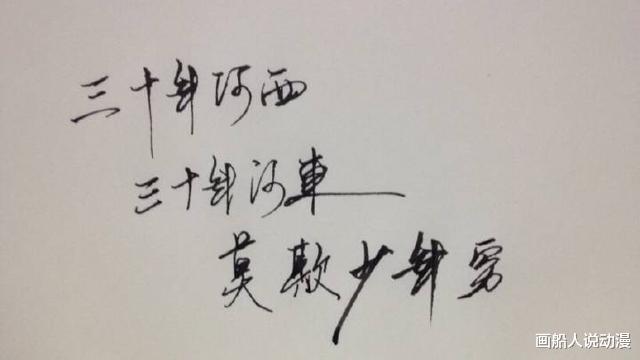 三十年河西
三十年河東
莫欺少年穷
画船人说动漫